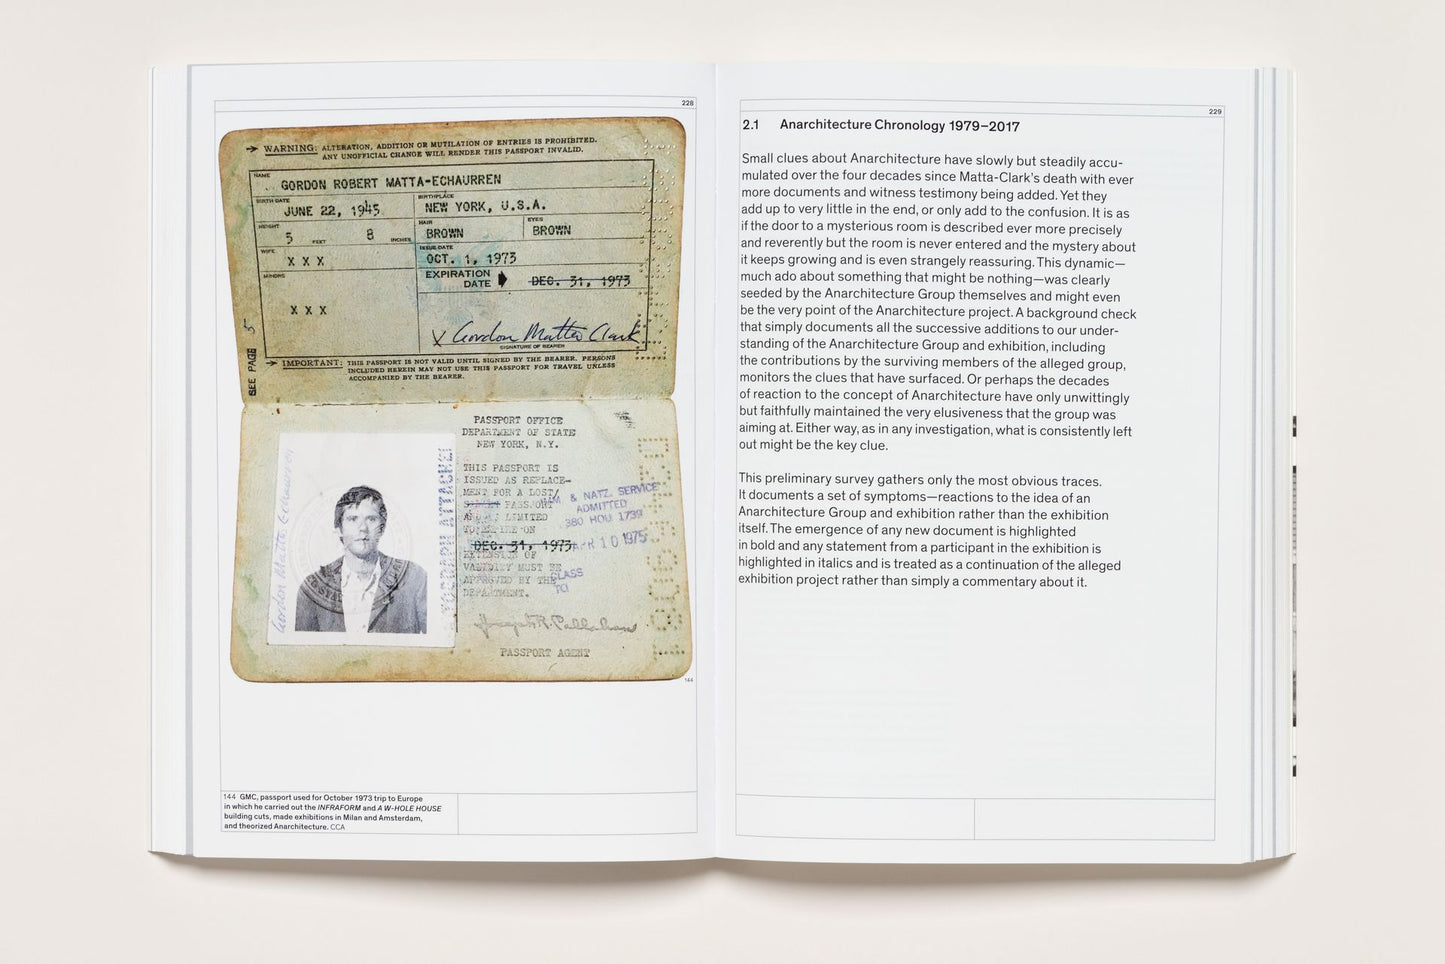 228
→ WARNING: ALTERATION, ADDITION OR MUTILATION OF ENTRIES IS PROHIBITED.
ANY UNOFFICIAL CHANGE WILL RENDER THIS PASSPORT INVALID.
NAME
GORDON ROBERT MATTA-ECHAURREN
BIRTH DATE
JUNE 22, 1945
BIRTHPLACE
NEW YORK, U.S.A.
HEIGHT
5 FEET 8 INCHES
HAIR
BROWN
EYES
BROWN
WIFE
X X X
ISSUE DATE
OCT. 1, 1973
MINORS
X X X
EXPIRATION
DATE
DEC. 31, 1973
X Gordon Matta Clark
SIGNATURE OF BEARER
SEE PAGE 5
→ IMPORTANT: THIS PASSPORT IS NOT VALID UNTIL SIGNED BY THE BEARER. PERSONS
INCLUDED HEREIN MAY NOT USE THIS PASSPORT FOR TRAVEL UNLESS
ACCOMPANIED BY THE BEARER.
PASSPORT OFFICE
DEPARTMENT OF STATE
NEW YORK, N.Y.
THIS PASSPORT IS
ISSUED AS REPLACE-
MENT FOR A LOST/
PASSPORT
AND IS LIMITED
TO EXPIRE ON
DEC. 31, 1973
EXTENSION OF
VALIDITY MUST BE
APPROVED BY THE
DEPARTMENT.
& NATZ. SERVICE
ADMITTED
380 HOU 1739
APR 10 1975
CLASS
TO
Gordon Matta Echaurren
Joseph R. Callahan
PASSPORT AGENT
144
144 GMC, passport used for October 1973 trip to Europe
in which he carried out the INFRAFORM and A W-HOLE HOUSE
building cuts, made exhibitions in Milan and Amsterdam,
and theorized Anarchitecture. CCA
229
2.1 Anarchitecture Chronology 1979–2017
Small clues about Anarchitecture have slowly but steadily accu-
mulated over the four decades since Matta-Clark's death with ever
more documents and witness testimony being added. Yet they
add up to very little in the end, or only add to the confusion. It is as
if the door to a mysterious room is described ever more precisely
and reverently but the room is never entered and the mystery about
it keeps growing and is even strangely reassuring. This dynamic—
much ado about something that might be nothing—was clearly
seeded by the Anarchitecture Group themselves and might even
be the very point of the Anarchitecture project. A background check
that simply documents all the successive additions to our under-
standing of the Anarchitecture Group and exhibition, including
the contributions by the surviving members of the alleged group,
monitors the clues that have surfaced. Or perhaps the decades
of reaction to the concept of Anarchitecture have only unwittingly
but faithfully maintained the very elusiveness that the group was
aiming at. Either way, as in any investigation, what is consistently left
out might be the key clue.
This preliminary survey gathers only the most obvious traces.
It documents a set of symptoms—reactions to the idea of an
Anarchitecture Group and exhibition rather than the exhibition
itself. The emergence of any new document is highlighted
in bold and any statement from a participant in the exhibition is
highlighted in italics and is treated as a continuation of the alleged
exhibition project rather than simply a commentary about it.